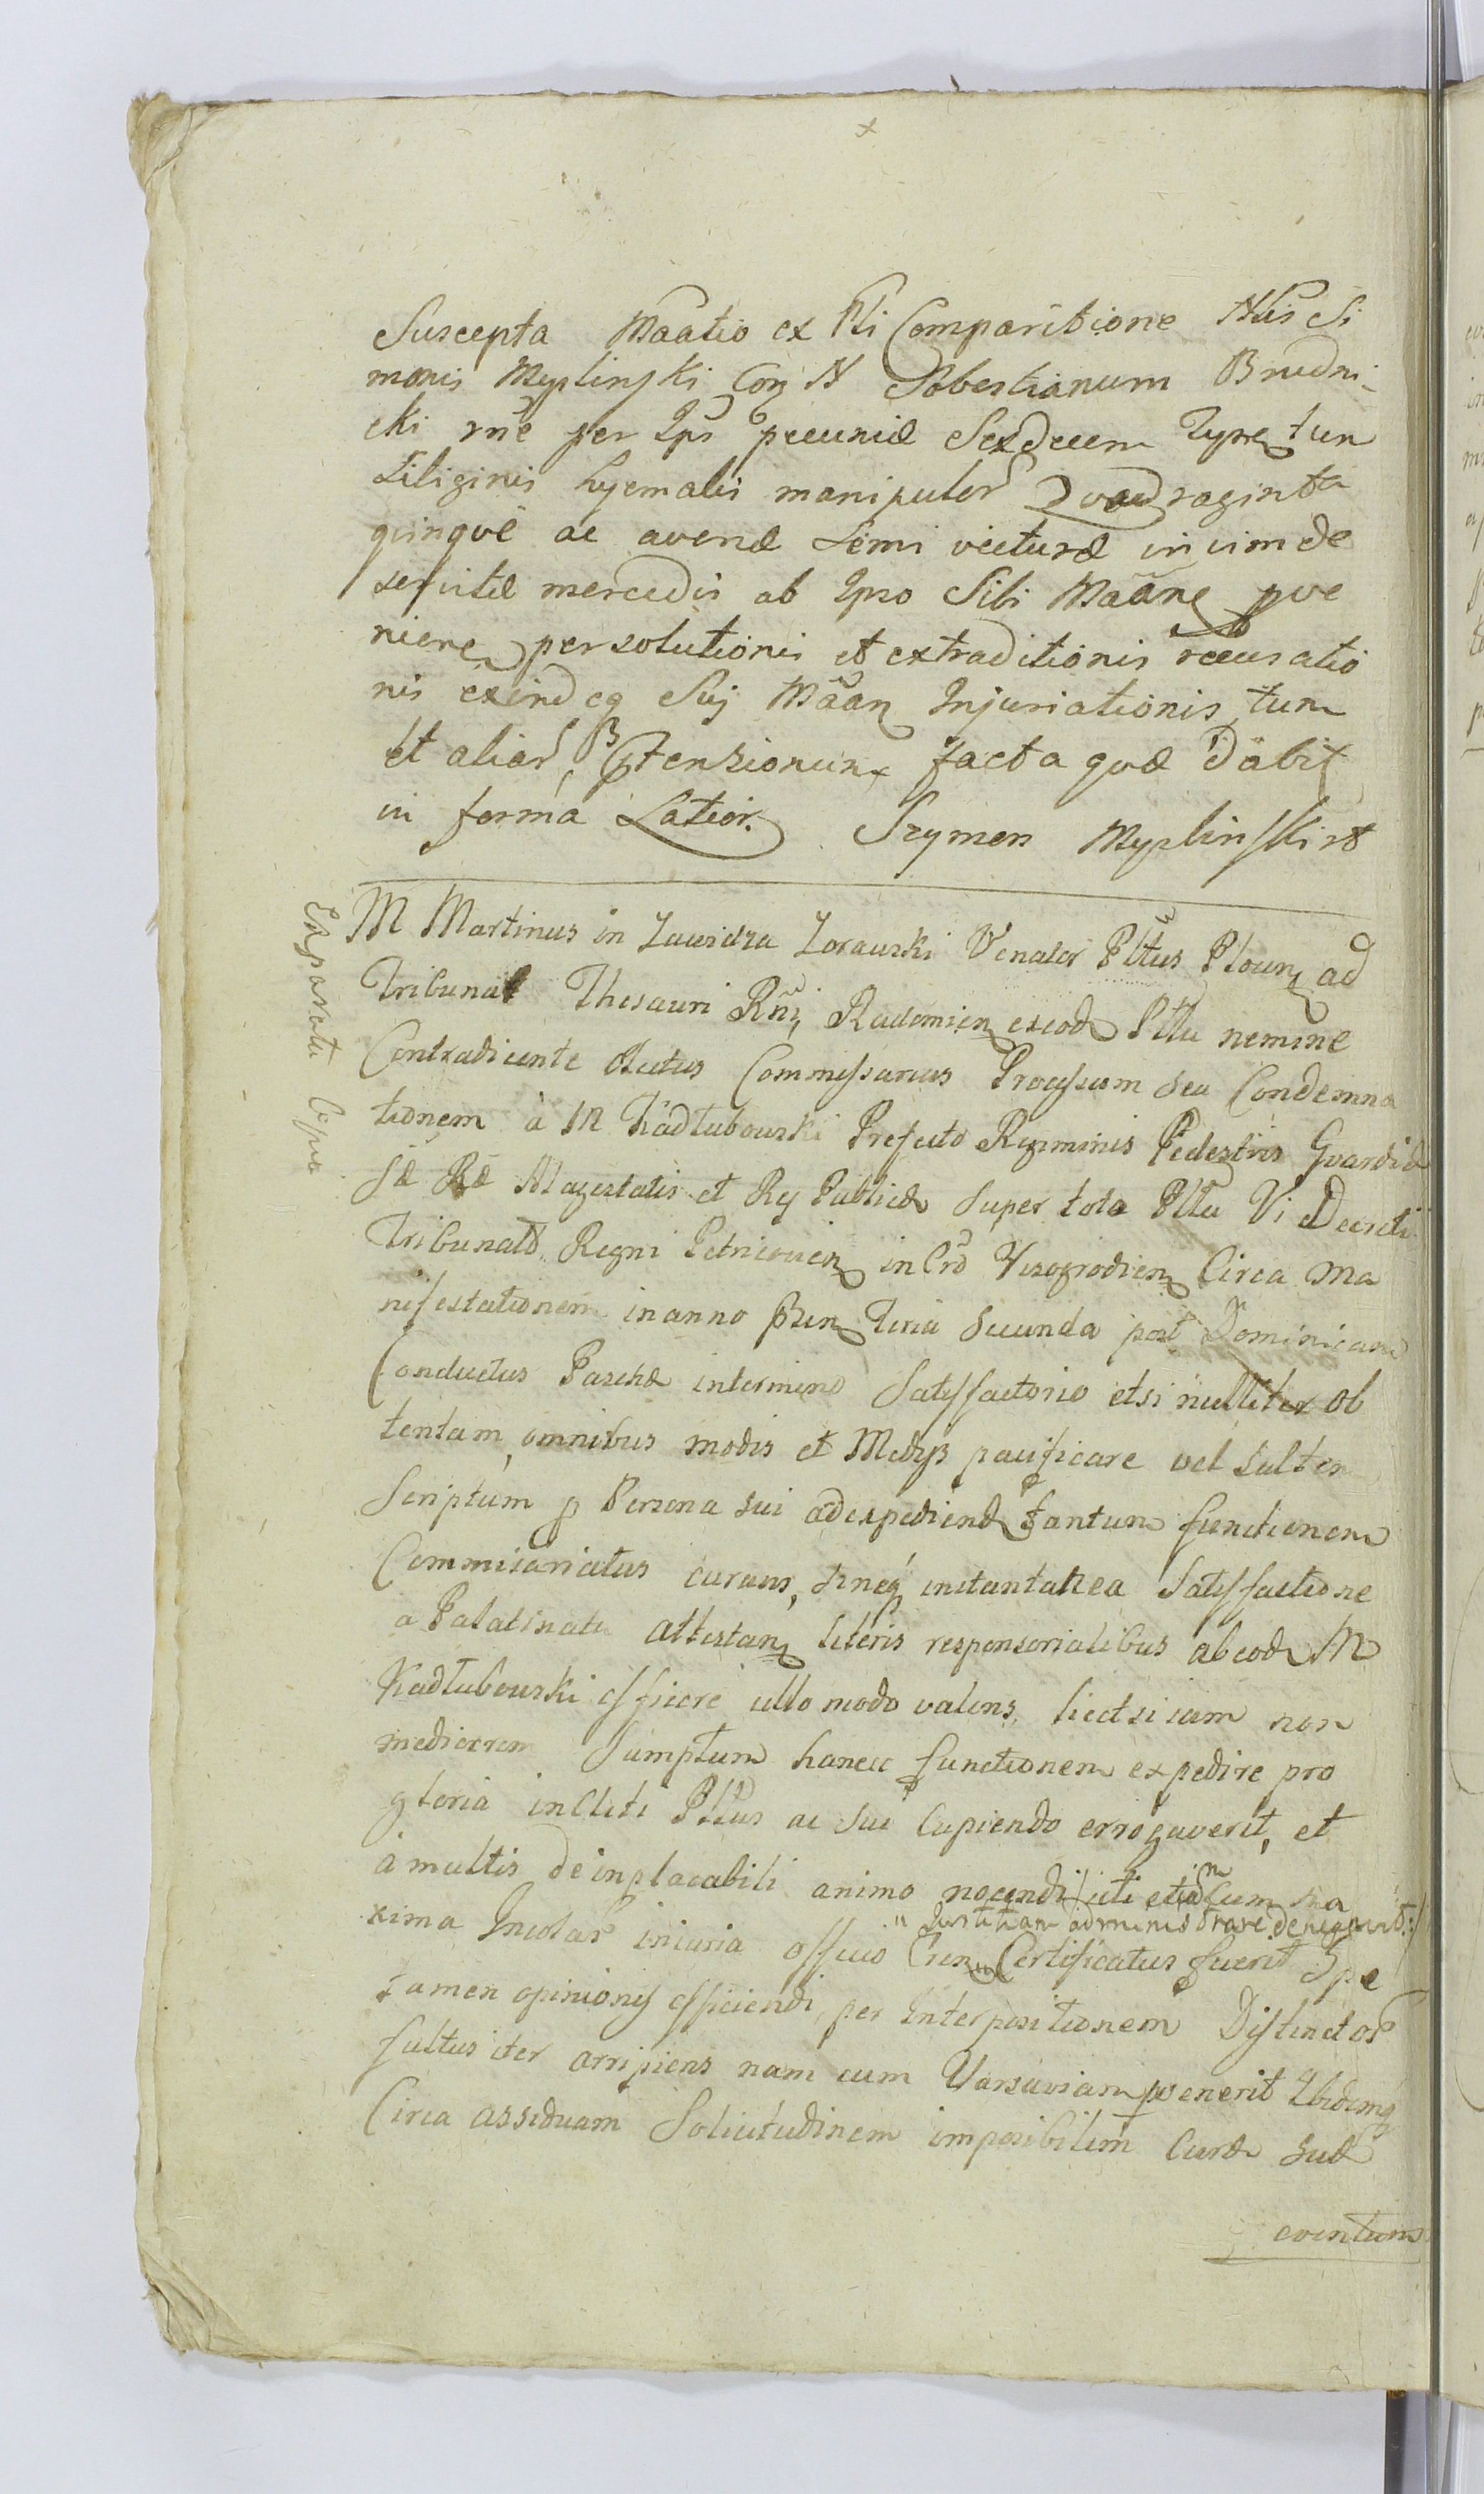 Suscepta Maatio ex Pti Comparitione Nlis Si
monis Myslinski Con N Sobestianum Brudni
cki rñe per Ips pecuniæ Sexdecem Tynf tum
Siliginis hyemalis manipulor Quadraginta
quinque ac avenæ Semi vecturæ in vim de
servitæ mercedis ab Ipso Sibi Maane pve
niene persolutionis et extraditionis recusatio
nis exindeq Suj Maan Injuriationis tum
et aliar Ptensionum facta quæ dabit
in forma Latior. Szymon Myslinski rt
M Martinus in Zawidza Zorawski Venator Pltus Plocen ad
Tribunal Thesauri Rñi, Radomien exeod Pltu nemine
Contradicente Electus Commissarius Processum seu Condemna
tionem à M Kadłubowski Prefecto Regiminis Pedestris Guardiæ
Sæ Ræ Magestatis et Rey Publicæ super toto Pltu Vi Decreti
Tribunalis Regni Petricovien in Cro Visogrodien Circa Ma
nifestationem in anno psen Feria Secunda post Dominicam
Conductus Paschæ intermino Satisfactorio etsi nulliter ob
tentam, omnibus modis et Medys pacificare vel Saltem
Scriptum p Persona sui ad expediend tantum functionem
Commisariatus curans, sineq instantanea Satisfactione
a Palatinatu attestan literis responsorialibus ab eod M
Kadłubowski efficere ullo modo valens, licet si iam non
mediocrem Sumptum hancce functionem expedire pro
gloria incliti Pltus ac sui Cupiendo errogaverit, et
à multis de inplacabili animo nocendi /: uti etiam cum ma
" Justitiam administrare denegavit :/
xima Incolar iniuria officio Cren Certificatus fuerit Spe
tamen opinionis efficiendi per Interpositionem Distinctor
fultus iter arripiens nam cum Varsaviam pvenerit Ibidemq
Circa assiduam Solicitudinem imposibilem Curæ suæ
eventum
Exparata Copia